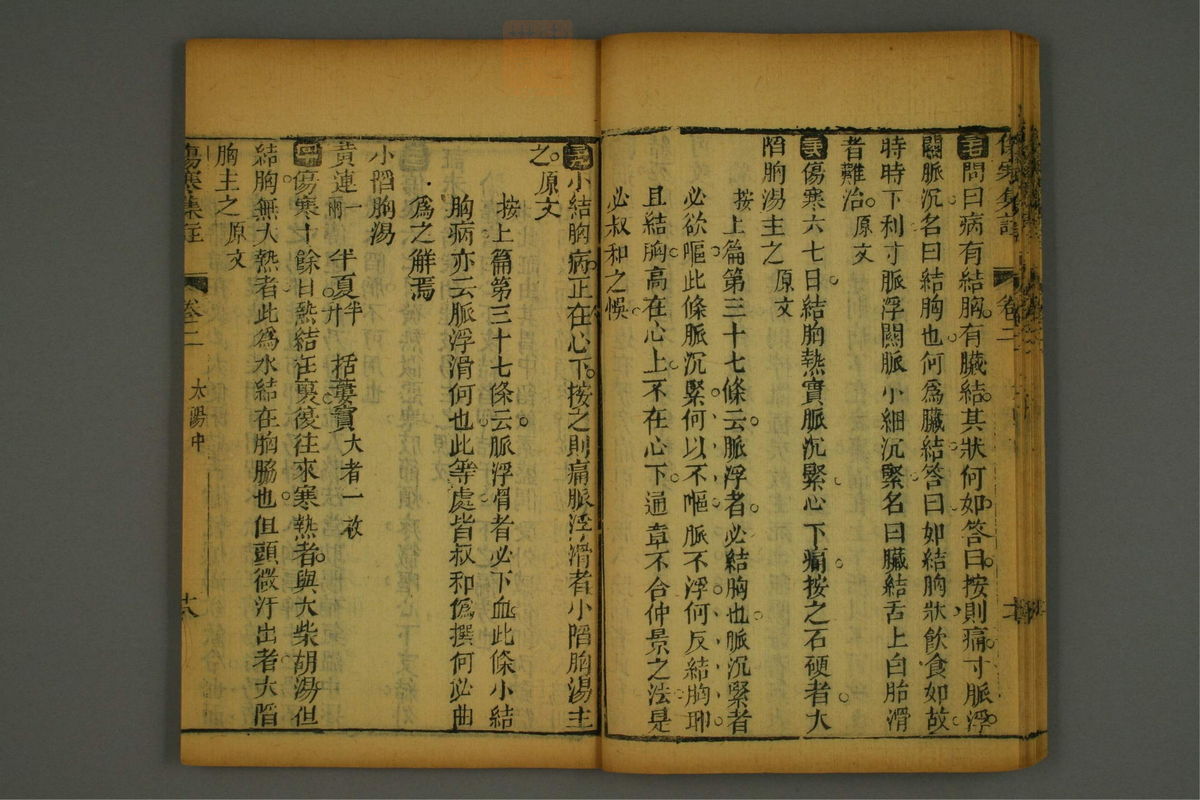 問曰病有結胸有臟結其狀何如答曰按則痛寸脈浮
關脈沉名曰結胸也何爲臟結答曰如結胸狀飲食如故
時時下利寸脈浮關脈小細沉緊名曰臟結舌上白胎滑
者難治原文
傷寒六七日結胸熱實脈沉緊心下痛按之石硬者大
陷胸湯主之 原文
按上篇第三十七條云脈浮者必結胸也脈沉緊者
必欲嘔此條脈沉緊何以不嘔脈不浮何反結胸耶
且結胸高在心上不在心下通章不合仲景之法是
必叔和之悞
小結胸病正在心下按之則痛脈浮滑者小陷胸湯主
之原文
按上篇第三十七條云脈浮滑者必下血此條小結
胸病亦云脈浮滑何也此等處皆叔和僞撰何必曲
爲之解焉
小陷胸湯
黃連一兩 半夏半升 括蔞實大者一枚
傷寒十餘日熱結在裏復往來寒熱者與大柴胡湯但
結胸無大熱者此爲水結在胸脇也但頭微汗出者大陷
胸主之原文
傷寒集註 卷二 太陽中